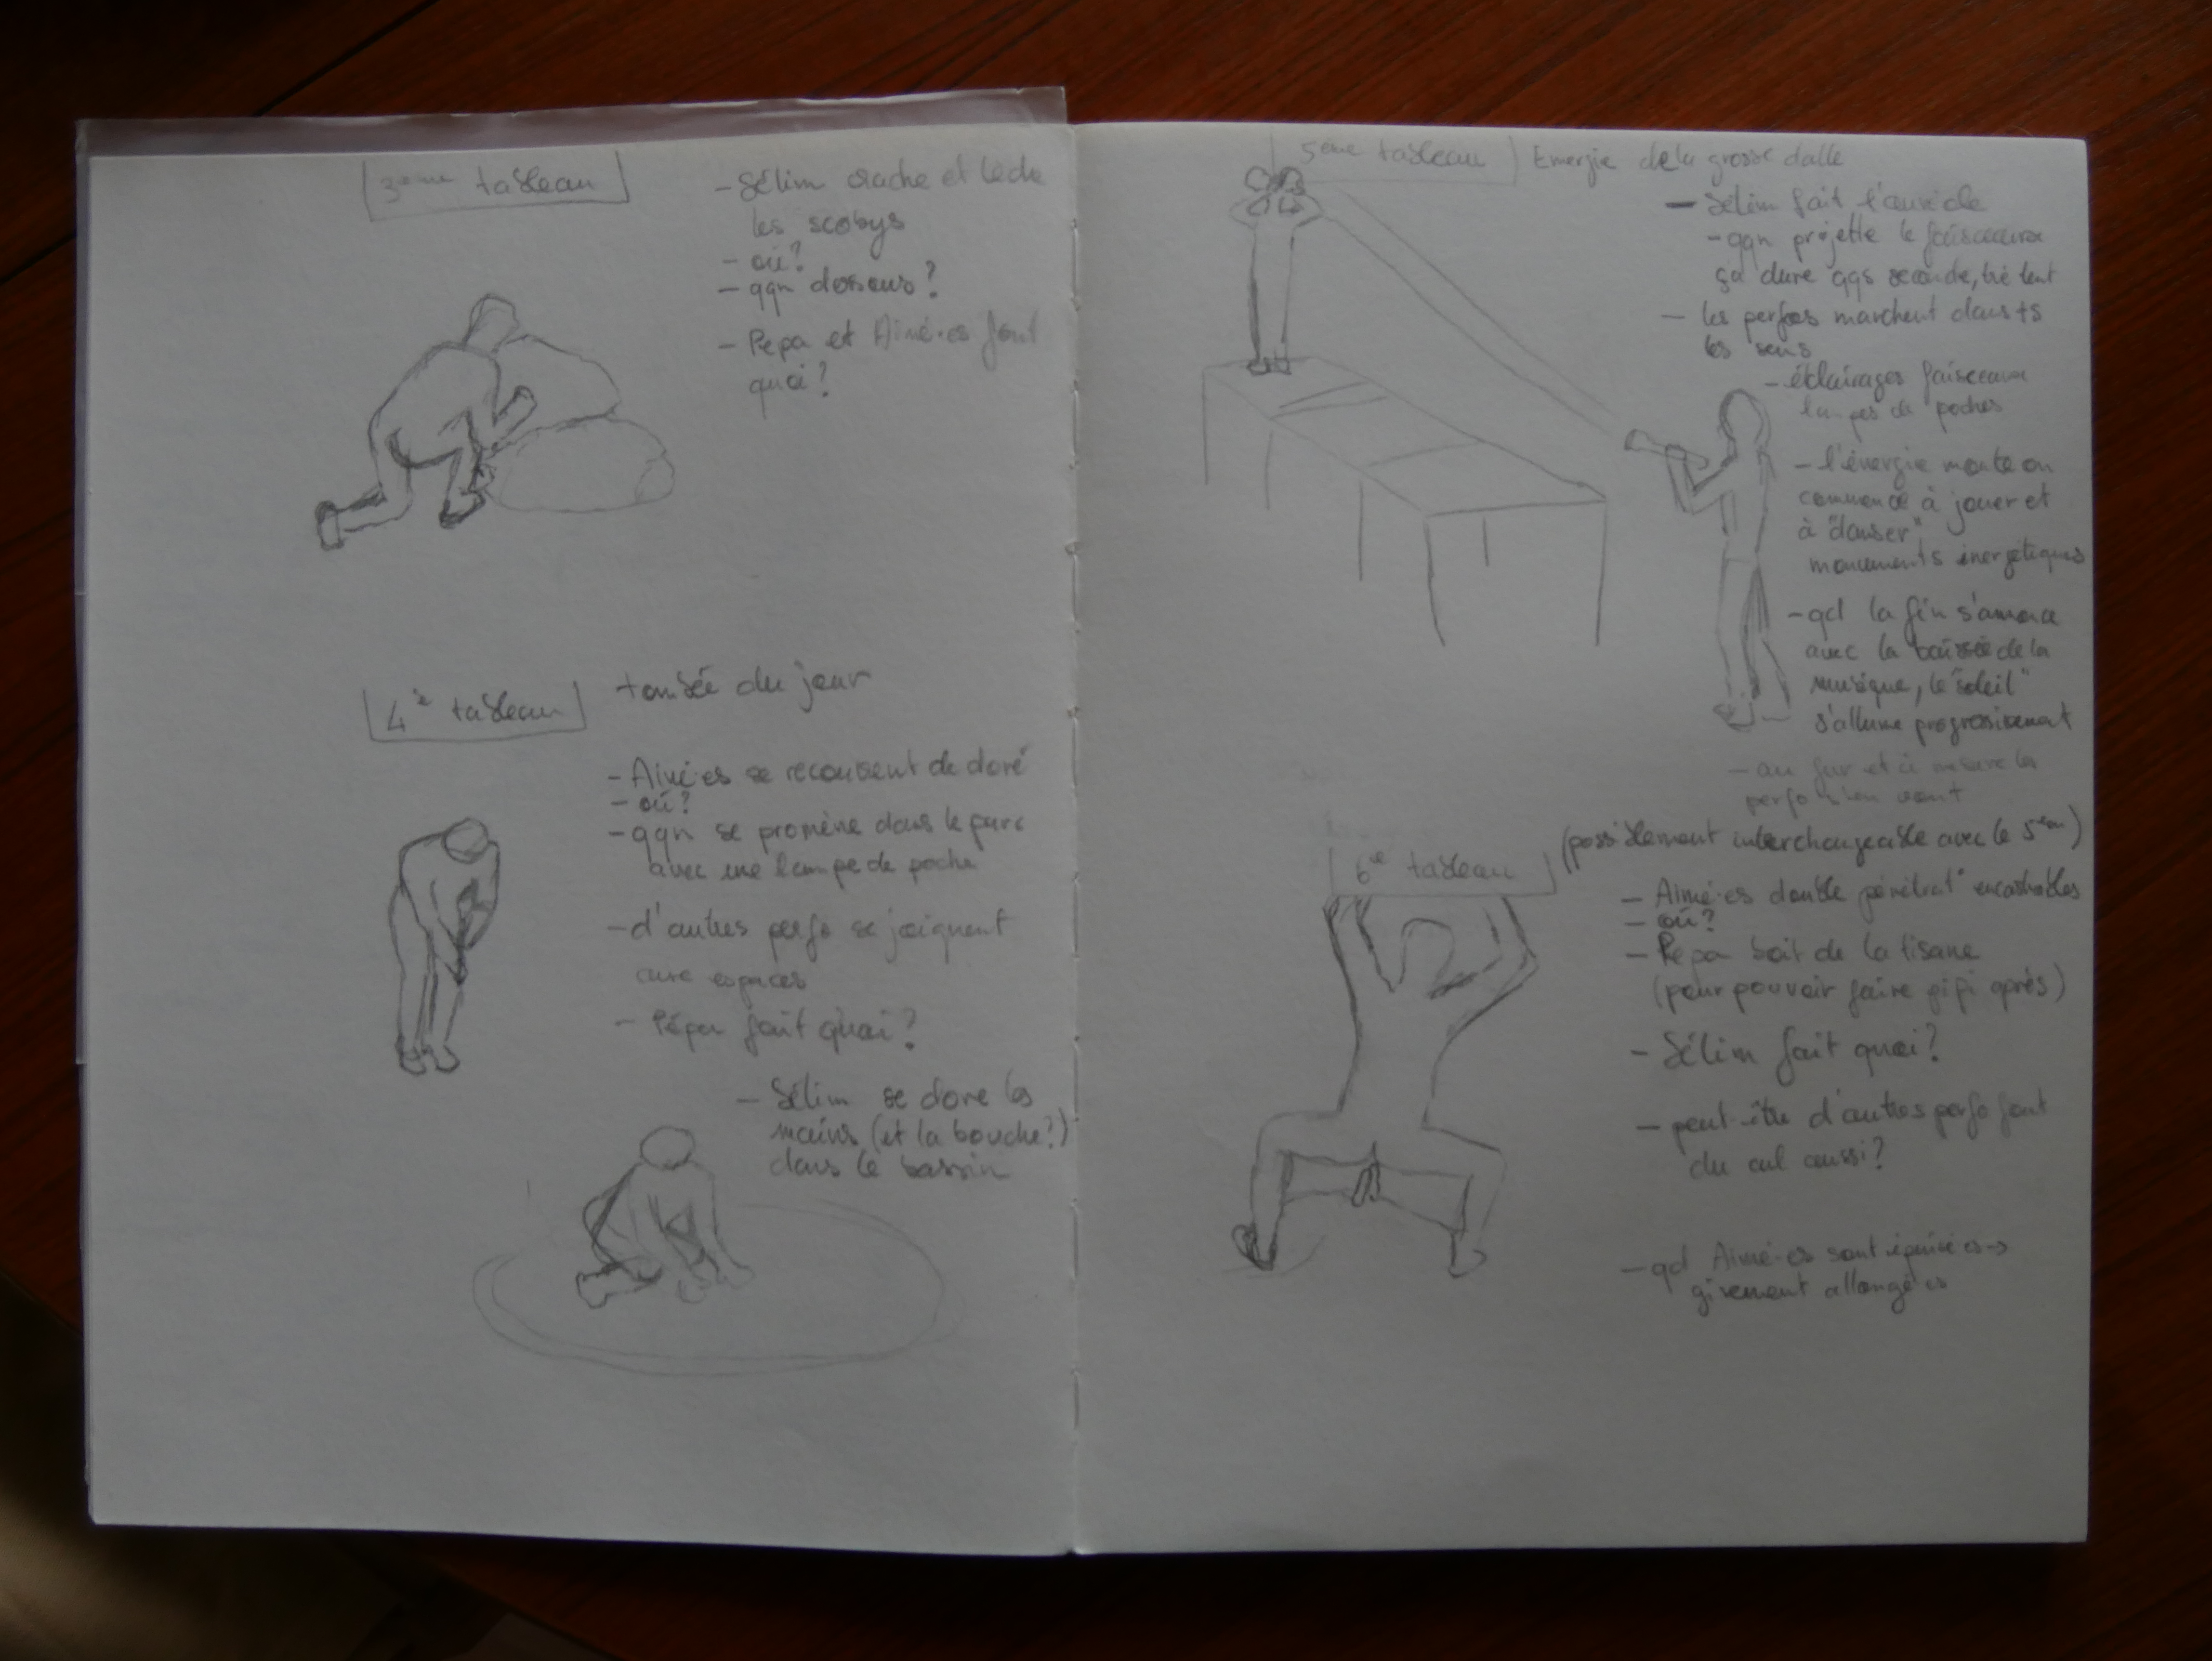 3ème tableau
- Sélim crache et lèche
les scobys
- où?
- qqn dessous?
- Pepa et Aimé·es font
quoi?
4è tableau
tombée du jour
- Aimé·es se recouvrent de doré
- où?
- qqn se promène dans le parc
avec une lampe de poche
- d'autres perfo se joignent
aux espaces
- Pépa fait quoi?
- Sélim se dore les
mains (et la bouche?)
dans le bassin
5ème tableau
Energie de la grosse dalle
- Sélim fait
- qqn projette le faisceaux
ça dure qqs seconde, très lent
- les perfos marchent dans ts
les sens
- éclairages faisceaux
lampes de poches
- l'énergie monte on
commence à jouer et
à "danser"
mouvements énergétiques
- qd la fin s'amorce
avec la baisse de la
musique, le "soleil"
s'allume progressivement
- au fur et à mesure les
perfo s'en vont
6è tableau
(possiblement interchangeable avec le 5ème)
- Aimé·es double pénétrat° encastrables
- où?
- Pépa boit de la tisane
(pour pouvoir faire pipi après)
- Sélim fait quoi?
- peut-être d'autres perfo font
du cul aussi?
- qd Aimé·es sont épuisé·es →
gisement allongé·es